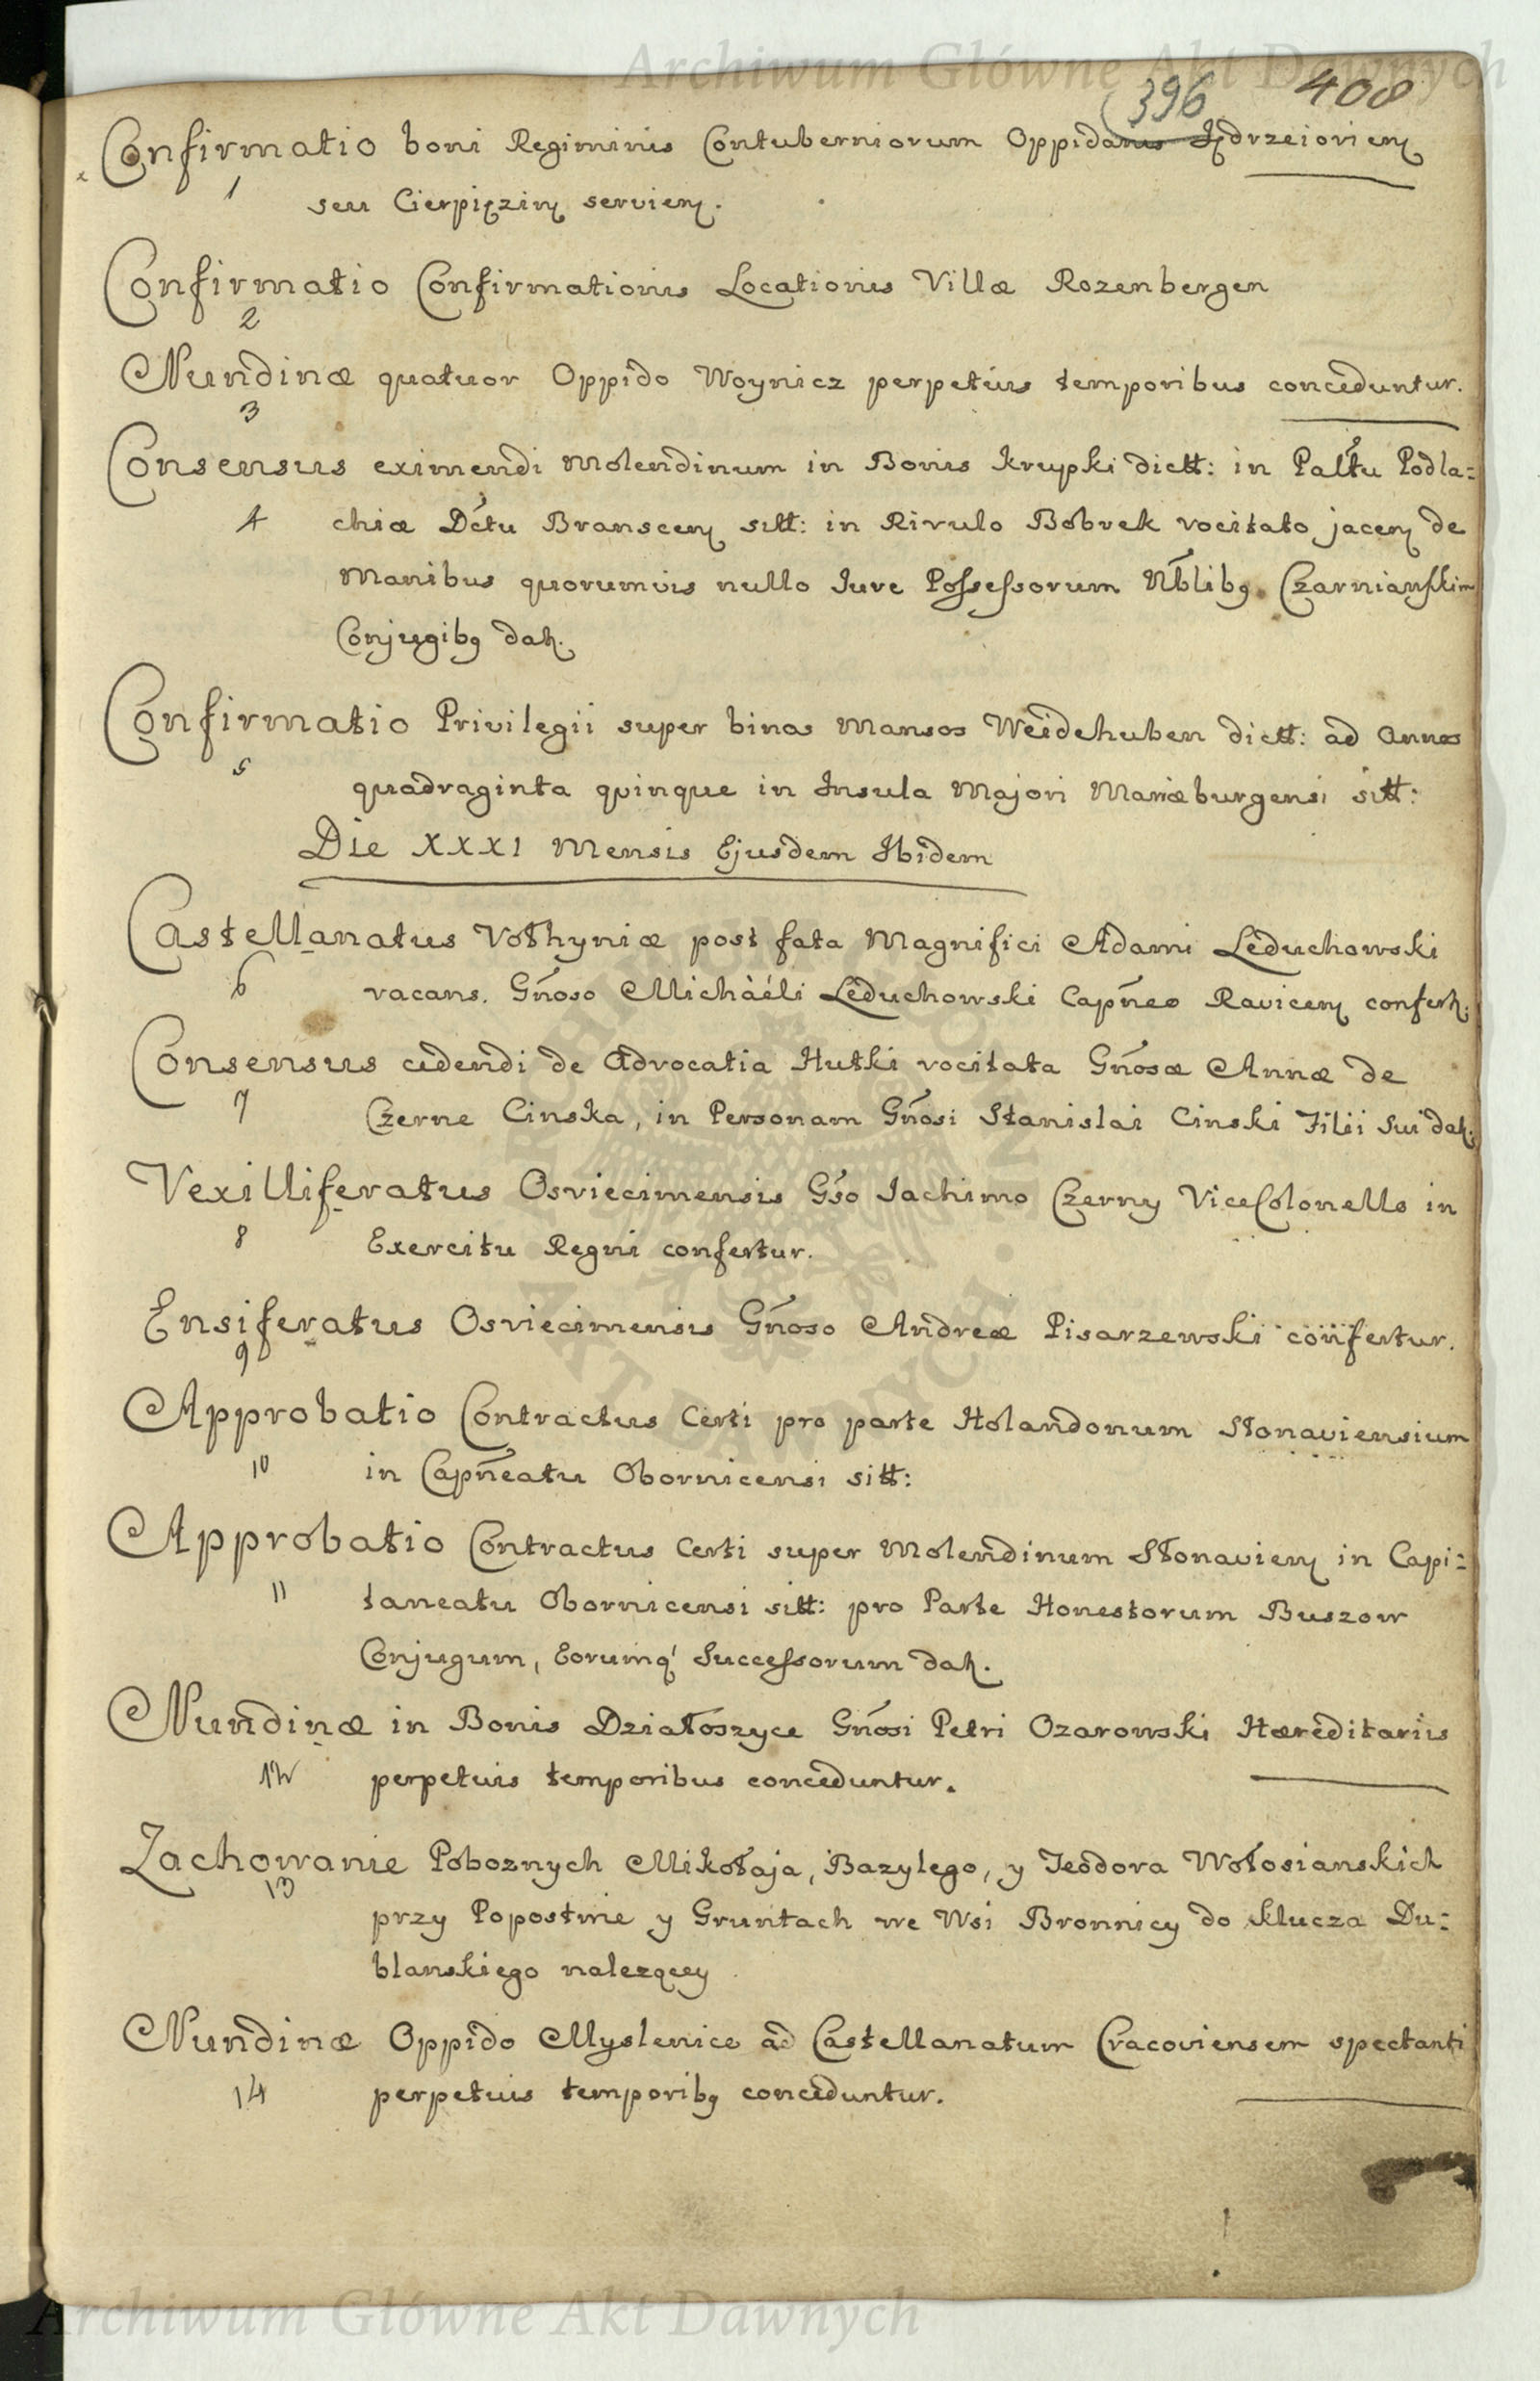 Archiwum Główne Akt Dawnych
396 408
Confirmatio boni Regiminis Contuberniorum Oppidanis Jędrzeiovien
1 seu Cierpięzin servien.
Confirmatio Confirmationis Locationis Villæ Rozenbergen
2
Nundinæ quatuor Oppido Woynicz perpetuis temporibus conceduntur.
3
Consensus eximendi Molendinum in Bonis Krupki dictt: in Paltu Podla=
4 chiæ Dctu Bransceen sitt: in Rivulo Bobrek vocitato jacen de
Manibus quorumvis nullo Jure Possessorum Nblibq Czarnianskim
Conjugibq dat.
Confirmatio Privilegii super binos Mansos Weidehuben dictt: ad annos
5 quadraginta quinque in Insula Majori Mariæburgensi sitt:
Die XXXI Mensis Ejusdem Ibidem
Castellanatus Vołhyniæ post fata Magnifici Adami Leduchowski
6 vacans. Gnoso Michàéli Leduchowski Capneo Ravicen confert.
Consensus cedendi de Advocatia Hutki vocitata Gnosæ Annæ de
7 Czerne Cinska, in Personam Gnosi Stanislai Cinski Filii Sui dat.
Vexilliferatus Osviecimensis Gso Jachimo Czerny ViceColonello in
8 Exercitu Regni confertur.
Ensiferatus Osviecimensis Gnoso Andreæ Pisarzewski confertur.
9
Approbatio Contractus Certi pro parte Holandonum Stonaviensium
10 in Capneatu Obornicensi sitt:
Approbatio Contractus Certi super Molendinum Stonavien in Capi=
11 taneatu Obornicensi sitt: pro Parte Honestorum Buszow
Conjugum, Eorumq' Successorum dat.
Nundinæ in Bonis Działoszyce Gnosi Petri Ozarowski Hæreditariis
12 perpetuis temporibus conceduntur.
Zachowanie Poboznych Mikołaja, Bazylego, y Teodora Wołosianskich
13 przy Popostwie y Gruntach we Wsi Bronnicy do Klucza Du=
blanskiego nalezącey
Nundinæ Oppido Myslenice ad Castellanatum Cracoviensem spectanti
14 perpetuis temporibq conceduntur.
Archiwum Główne Akt Dawnych